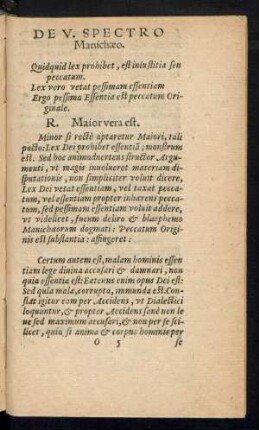 DE V. SPECTRO
Manichæo.
Quidquid lex prohibet, est iniustitia seu
peccatum.
Lex vero vetat pessimam essentiam
Ergo pessima Essentia est peccatum Ori-
ginale.
R. Maior vera est.
Minor si rectè aptaretur Maiori, tali
pacto: Lex Dei prohibet essentiã; monstrum
est. Sed hoc animaduertens structor Argu-
menti, vt magis inuolueret materiam di-
sputationis, non simpliciter voluit dicere,
Lex Dei vetat essentiam, vel taxat pecca-
tum, vel essentiam propter inhærens pecca-
tum, sed pessimam essentiam voluit addere,
vt videlicet, fucum deliro & blasphemo
Manichæorum dogmati: Peccatum Origi-
nis est substantia: affingeret:
Certum autem est, malam hominis essen
tiam lege diuina accusari & damnari, non
quia essentia est: Eatenus enim opus Dei est:
Sed quia mala, corrupta, immunda est. Con-
stat igitur eam per Accidens, vt Dialectici
loquuntur, & propter Accidens sanè non le
ue sed maximum accusari, & non per se sci-
licet, quin si anima & corpus hominis per
O 5 se